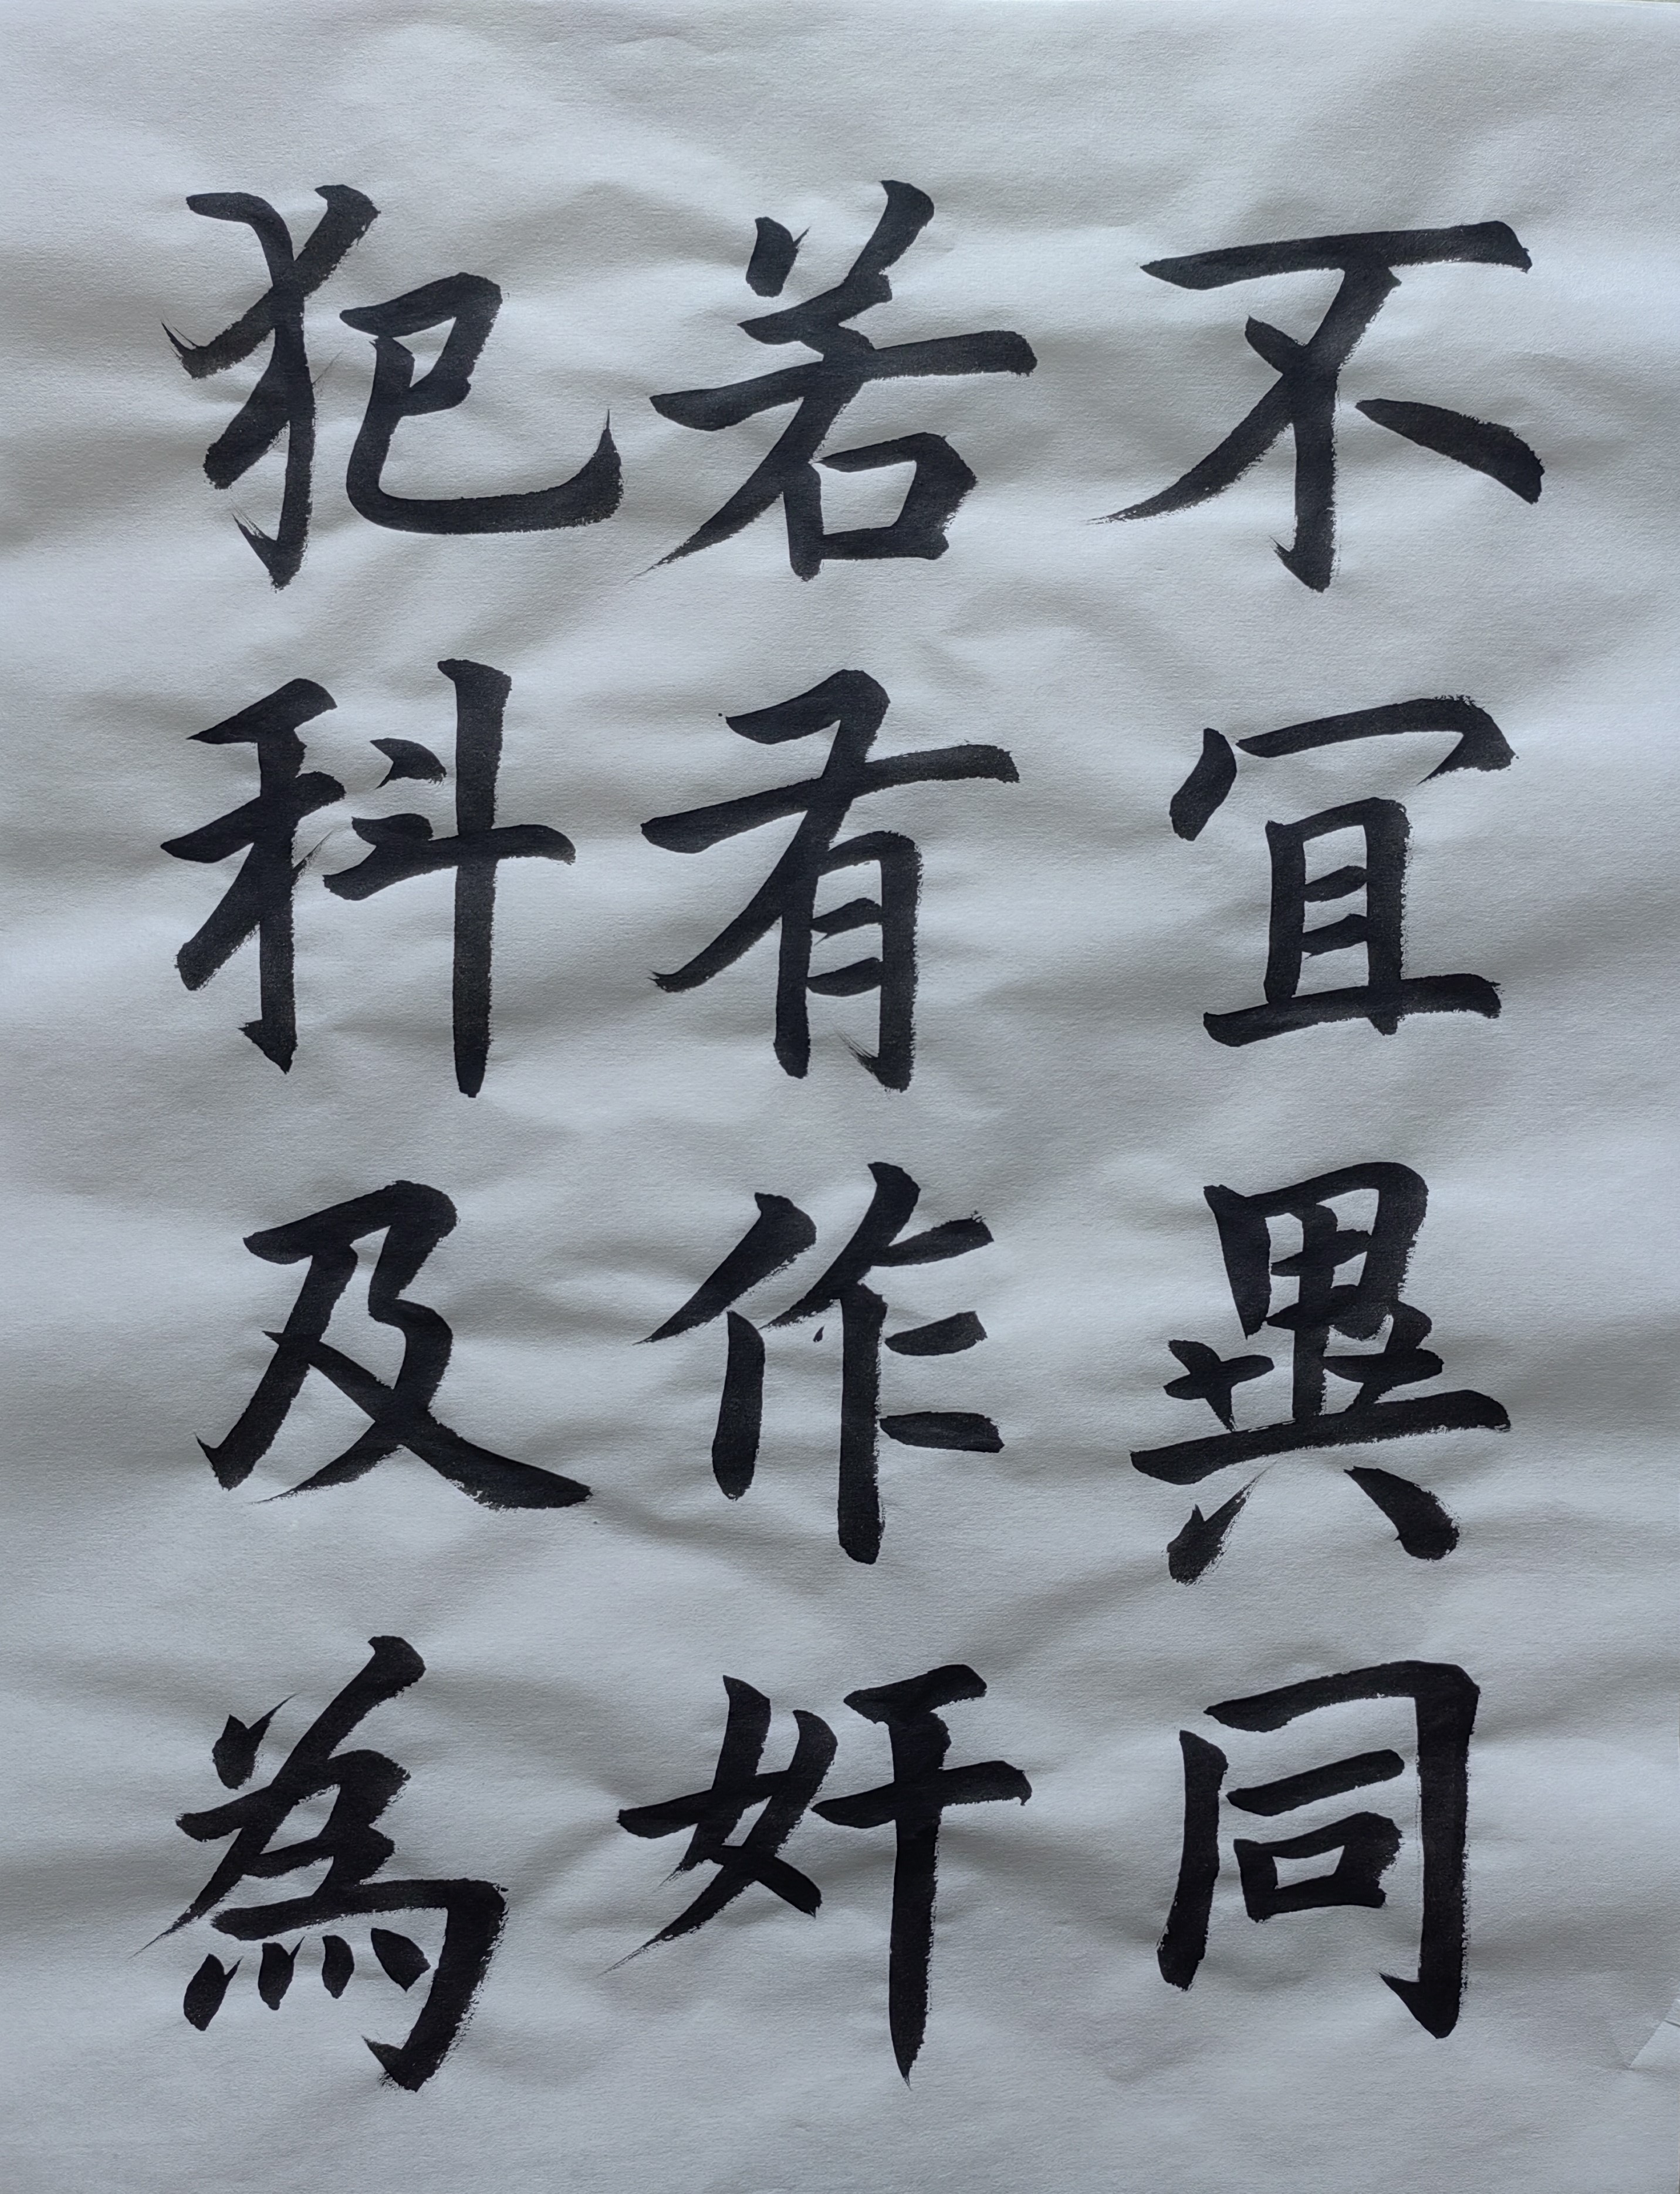 不宜異同
若有作奸
犯科及為